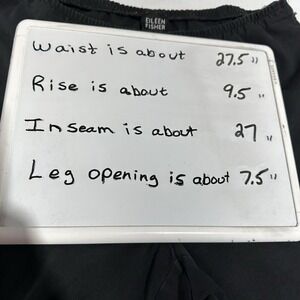 EILEEN
FISHER
Waist is about 27.5"
Rise is about 9.5"
Inseam is about 27"
Leg opening is about 7.5"